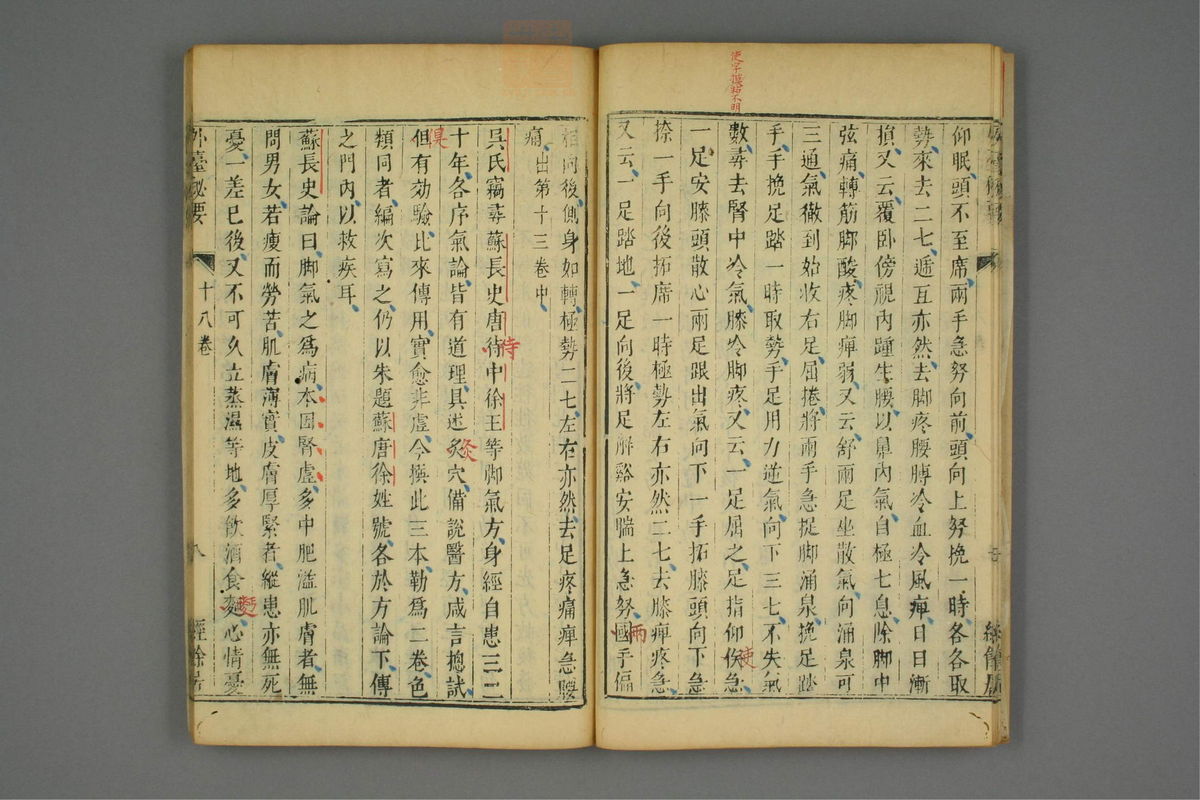 使字模黏不明
仰眠頭不至席兩手急努向前頭向上努挽一時各各取
勢來去二七遞互亦然去脚疼腰髆冷血冷風痺日日漸
損又云覆卧傍視內踵生腰以鼻內氣自極七息除脚中
弦痛轉筋脚酸疼脚痺弱又云舒兩足坐散氣向涌泉可
三通氣徹到始收右足屈捲將兩手急捉脚涌泉挽足踏
手手挽足踏一時取勢手足用力逆氣向下三七不失氣
數尋去腎中冷氣膝冷脚疼又云一足屈之足指仰使急
一足安膝頭散心兩足跟出氣向下一手拓膝頭向下急
捺一手向後拓席一時極勢左右亦然二七去膝痺疼急
又云一足踏地一足向後將足解谿安腨上急努國手偏
兩
使
相向後側身如轉極勢二七左右亦然去足疼痛痺急腰
痛出第十三卷中
吳氏竊尋蘇長史唐待中徐王等脚氣方身經自患三二
侍
十年各序氣論皆有道理具述炙穴備說醫方咸言總試
灸
但有効驗比來傳用實愈非虛今撰此三本勒爲二卷色
俱
類同者編次寫之仍以朱題蘇唐徐姓號各於方論下傳
之門內以救疾耳
蘇長史論曰脚氣之爲病本因腎虛多中肥溢肌膚者無
問男女若瘦而勞苦肌膚薄實皮膚厚緊者縱患亦無死
憂一差已後又不可久立蒸濕等地多飲酒食麵心情憂
麪
外臺祕要
十八卷
八
經餘居